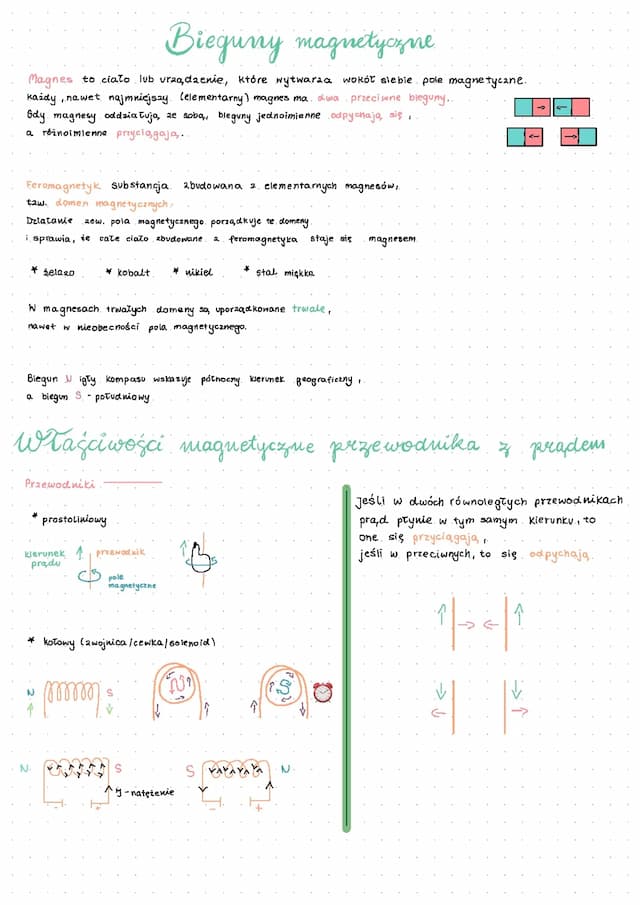 Bieguny magnetyczne
Magnes to ciało lub urządzenie, które wytwarza wokół siebie pole magnetyczne.
Każdy, nawet najmniejszy (elementarny) magnes ma dwa przeciwne bieguny.
Gdy magnesy oddziałują ze sobą, bieguny jednoimienne odpychają się,
a różnoimienne przyciągają.
Feromagnetyk substancja zbudowana z elementarnych magnesów,
tzw. domen magnetycznych.
Działanie zew. pola magnetycznego porządkuje te domeny
i sprawia, że całe ciało zbudowane z feromagnetyka staje się magnesem
* żelazo * kobalt * nikiel * stal miękka
W magnesach trwałych domeny są uporządkowane trwale,
nawet w nieobecności pola magnetycznego.
Biegun N igły kompasu wskazuje północny kierunek geograficzny,
a biegun S - południowy
Właściwości magnetyczne przewodnika z prądem
Przewodniki
* prostoliniowy
kierunek prądu
przewodnik
pole magnetyczne
* kołowy (zwojnica/cewka/solenoid)
N S
N S
I - natężenie
- +
S N
- +
Jeśli w dwóch równoległych przewodnikach
prąd płynie w tym samym kierunku, to
one się przyciągają,
jeśli w przeciwnych, to się odpychają